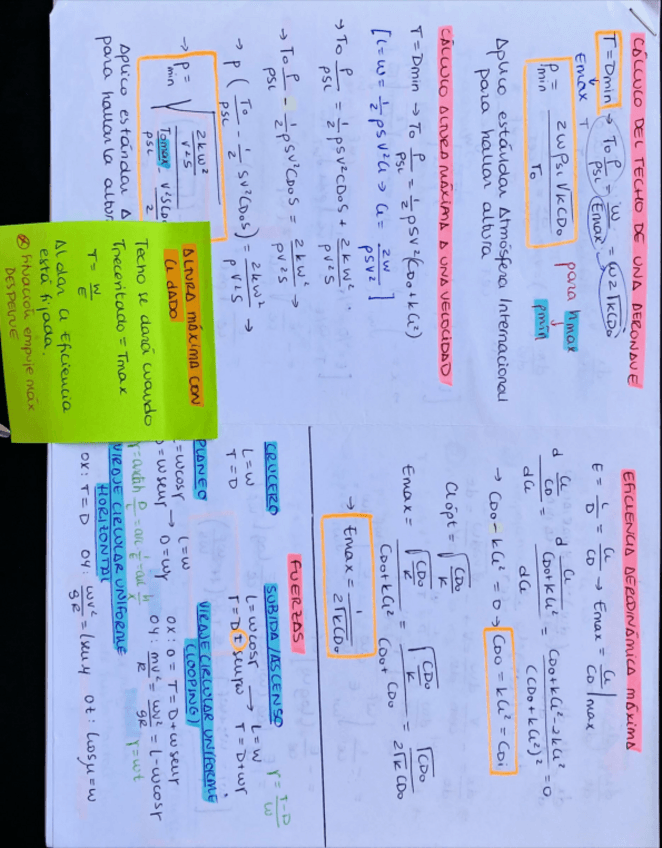 CÁLCULO DEL TECHO DE UNA AERONAVE
T = Dmin → To ρ/ρSL = W/Emax = W 2√kCDo
Emax T
ρmin = 2WρSL√kCDo / To
para hmax
ρmin
Aplico estándar Atmósfera Internacional
para hallar altura
CÁLCULO ALTURA MÁXIMA A UNA VELOCIDAD
T = Dmin → To ρ/ρSL = 1/2 ρSV²(CDo + kCl²)
[L = W = 1/2 ρSV²Cl → Cl = 2W/ρSV²]
→ To ρ/ρSL = 1/2 ρSV²CDoS + 2kW²/ρV²S
→ To ρ/ρSL - 1/2 ρSV²CDoS = 2kW²/ρV²S →
→ ρ(To/ρSL - 1/2 SV²CDoS) = 2kW²/ρV²S →
→ ρmin = √ 2kW²/V²S / Tomax/ρSL V²SCDo/2
Aplico estándar A
para hallar la altur
ALTURA MÁXIMA CON
Cl DADO
Techo se dará cuando
Tnecesitado = Tmax
T = W/E
Al dar Cl Eficiencia
está fijada.
⊗ Situación empuje máx
DESPEGUE
EFICIENCIA AERODINÁMICA MÁXIMA
E = L/D = Cl/CD → Emax = Cl/CD|max
d Cl/CD / dCl = d Cl/CDo+kCl² / dCl = CDo+kCl²-2kCl² / (CDo+kCl²)² = 0
→ CDo = kCl² = 0 → CDo = kCl² = CDi
Clópt = √CDo/k
Emax = √CDo/k / CDo+kCl² = √CDo/k / CDo+CDo = √CDo / 2√kCDo
→ Emax = 1/2√kCDo
FUERZAS
CRUCERO
L = W
T = D
SUBIDA/ASCENSO
L = Wcosγ → L = W
T = D + senγW T = D + Wγ
γ = T-D/W
PLANEO
= Wcosγ → L = W
= Wsenγ 0 = Wγ
VIRAJE CIRCULAR UNIFORME
(LOOPING)
OX: 0 = T = D + Wsenγ
OY: mV²/R = WV²/gR = L - Wcosγ
γ = ωt
VIRAJE CIRCULAR UNIFORME
HORIZONTAL
OX: T = D OY: WV²/gR = Lsenμ Oz: Lcosμ = W